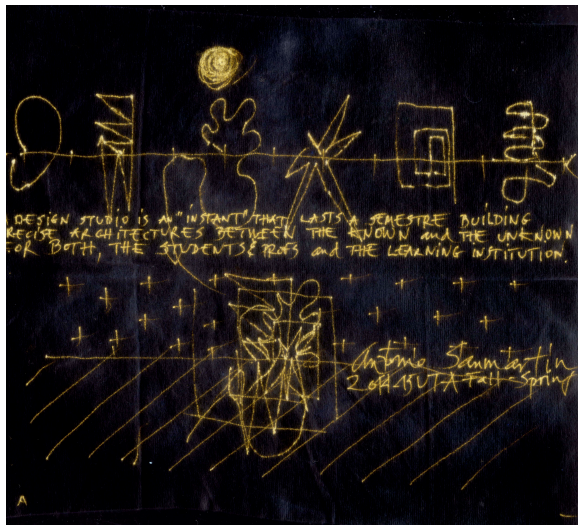 A DESIGN STUDIO IS AN "INSTANT" THAT LASTS A SEMESTRE BUILDING
PRECISE ARCHITECTURES BETWEEN THE KNOWN and THE UNKNOWN
FOR BOTH, THE STUDENTS & PROFS and THE LEARNING INSTITUTION.
Antonio Sanmartin
2014.15 UTA Fall-Spring
A